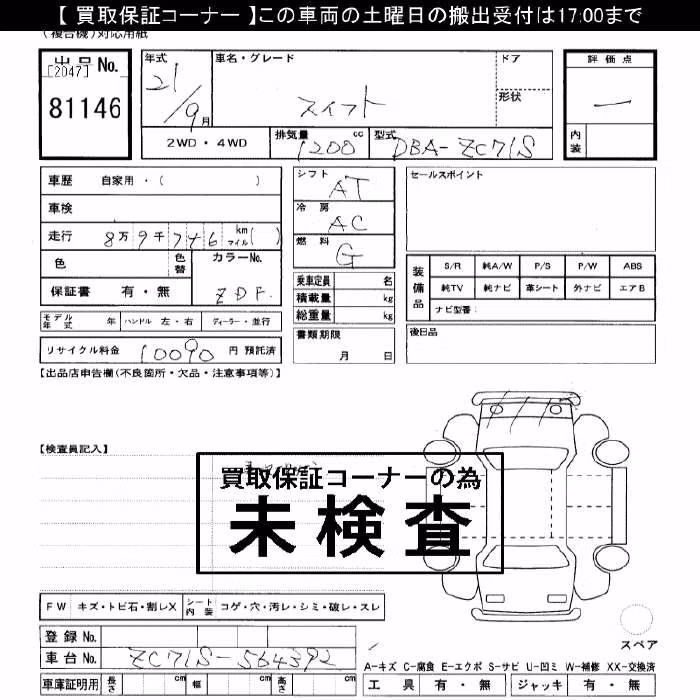 【 買取保証コーナー 】この車両の土曜日の搬出受付は17:00まで
(複合機)対応用紙
出品No.
[2047]
81146
年式
21/9月
車名・グレード
スイフト
ドア
形状
評価点
一
内装
2WD・4WD
排気量
1200cc
型式
DBA-ZC71S
車歴 自家用・( )
車検
走行 8万9千7十6 km マイル( )
色
色替
カラーNo.
ZDF
保証書 有・無
モデル年式 年 ハンドル 左・右 ディーラー・並行
リサイクル料金 10090 円 預託済
シフト
AT
冷房
AC
燃料
G
乗車定員 名
積載量 kg
総重量 kg
書類期限
月 日
セールスポイント
装備品
S/R 純A/W P/S P/W ABS
純TV 純ナビ 革シート 外ナビ エアB
ナビ型番:
後日品
【出品店申告欄(不良箇所・欠品・注意事項等)】
【検査員記入】
買取保証コーナーの為
未検査
FW キズ・トビ石・割レX シート内装 コゲ・穴・汚レ・シミ・破レ・スレ
登録No.
車台No. ZC71S-564392
車庫証明用 長さ cm 幅 cm 高さ cm
スペア
A-キズ C-腐食 E-エクボ S-サビ U-凹ミ W-補修 XX-交換済
工具 有・無 ジャッキ 有・無